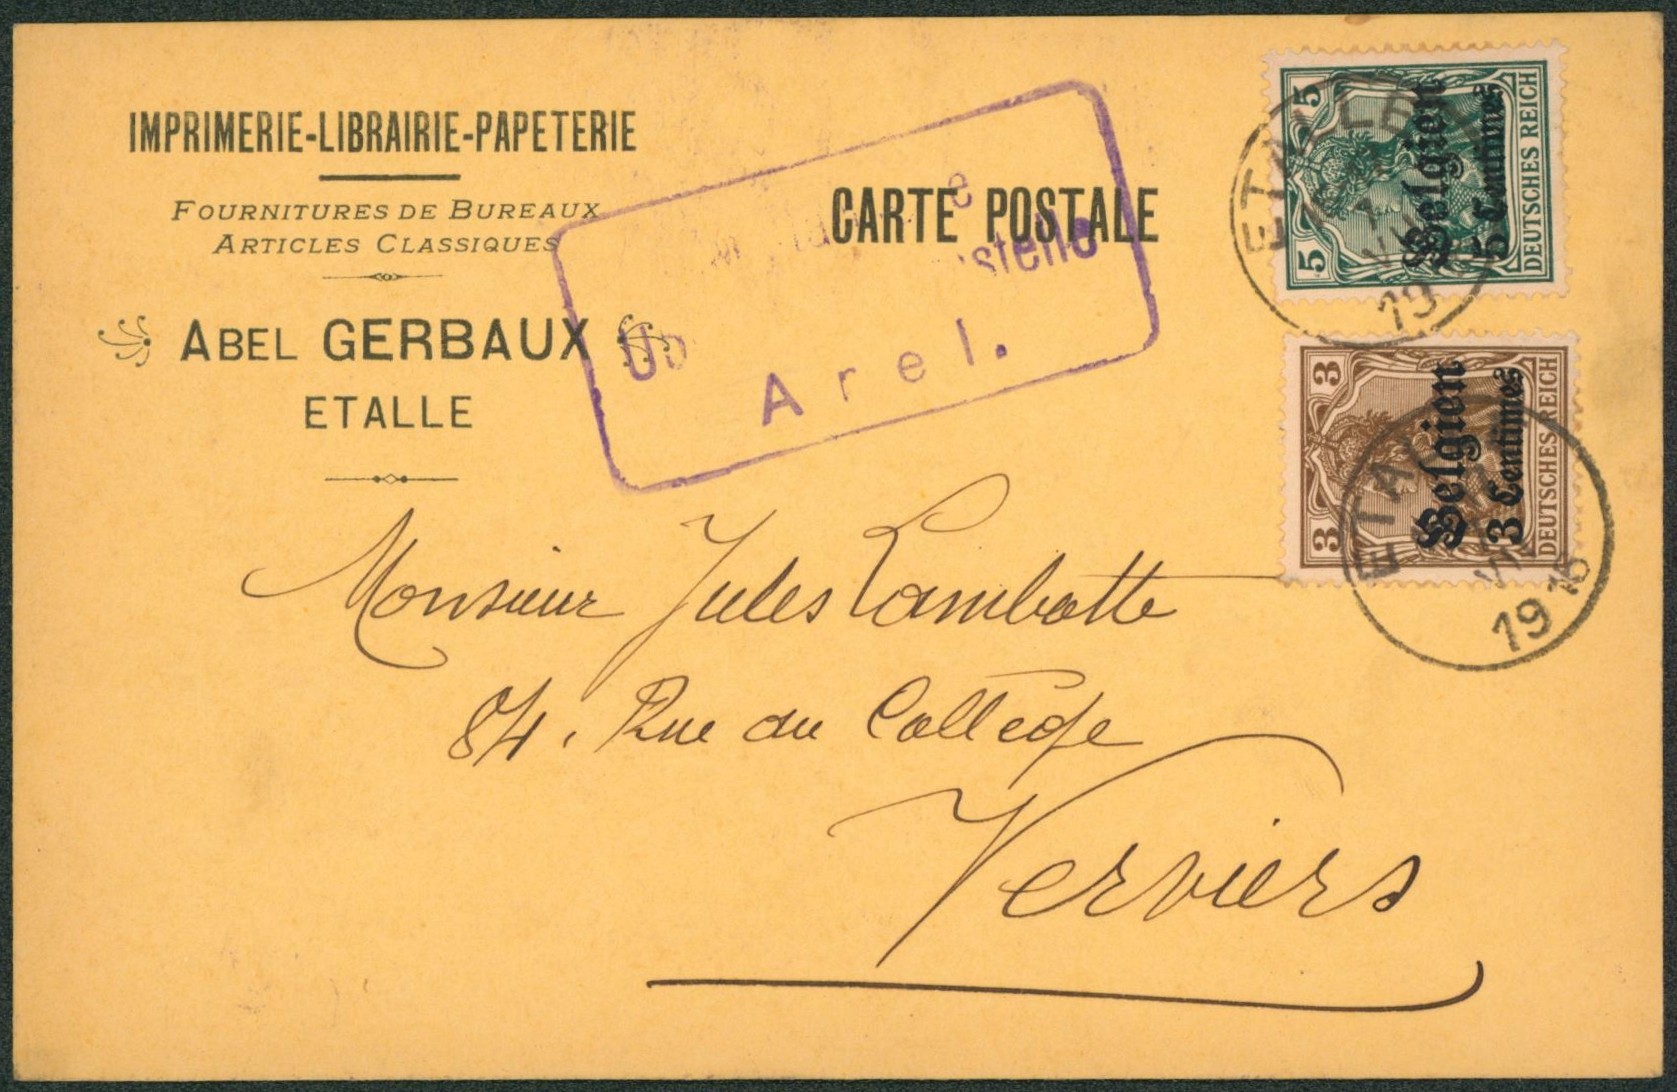 IMPRIMERIE-LIBRAIRIE-PAPETERIE
FOURNITURES DE BUREAUX
ARTICLES CLASSIQUES
ABEL GERBAUX
ETALLE
CARTE POSTALE
Arel.
5 5
Belgien
5 Centimes
DEUTSCHES REICH
ETALLE
19
3 3
Belgien
3 Centimes
DEUTSCHES REICH
ETALLE
1916
Monsieur Jules Lambotte
84, Rue du Collège
Verviers